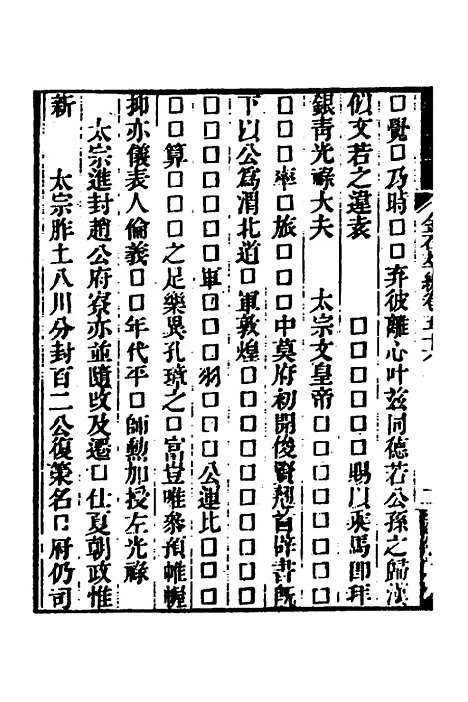 □覺□乃時□□弃彼離心叶茲同德若公孫之歸漢
似文若之違袁　　　□□□□□□賜以乘馬即拜
銀靑光祿大夫　　太宗文皇帝□□□□□□□□
□□□率□旅□□□□中莫府初開俊賢翹首辟書旣
下以公爲渭北道□軍敦煌□□□□□□□□□□□
□□□□□□□□軍□□□羽□□□公連比□□□□
□□算□□□□之足樂異孔璋之□富豈唯參預帷幄
抑亦儀表人倫義□□年代平□師勲加授左光祿
　太宗進封趙公府寮亦並隨改及遷□仕夏朝政惟
新　　太宗胙土八川分封百二公復策名□府仍司
金石萃編卷五十六